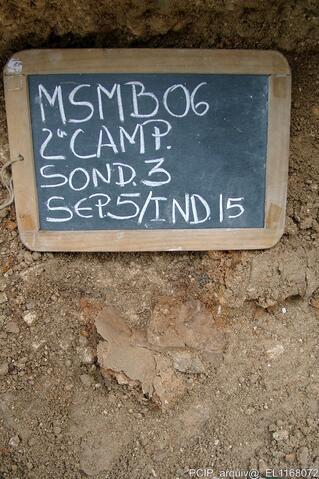 MSMB06
2ª CAMP.
SOND. 3
SEP.5/IND.15
PCIP_arquiv@_EL1168072